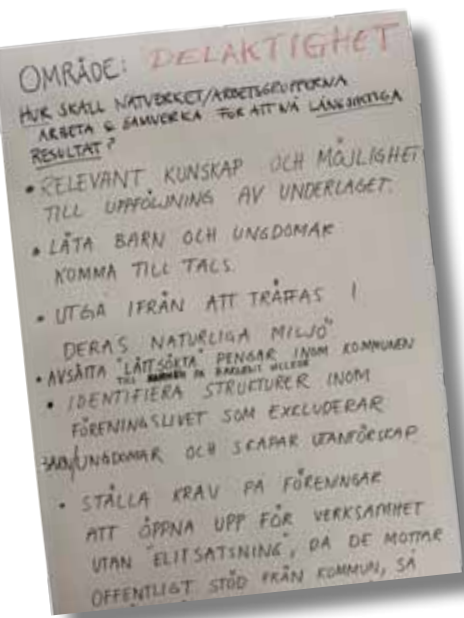 OMRÅDE: DELAKTIGHET
HUR SKALL NÄTVERKET/ARBETSGRUPPERNA
ARBETA & SAMVERKA FÖR ATT NÅ LÅNGSIKTIGA
RESULTAT?
• RELEVANT KUNSKAP OCH MÖJLIGHET
TILL UPPFÖLJNING AV UNDERLAGET.
• LÅTA BARN OCH UNGDOMAR
KOMMA TILL TALS.
• UTGÅ IFRÅN ATT TRÄFFAS I
DERAS NATURLIGA MILJÖ
• AVSÄTTA "LÄTTSÖKTA" PENGAR INOM KOMMUNEN
TILL BARNEN PÅ BARNENS VILLKOR
• IDENTIFIERA STRUKTURER INOM
FÖRENINGSLIVET SOM EXCLUDERAR
BARN/UNGDOMAR OCH SKAPAR UTANFÖRSKAP
• STÄLLA KRAV PÅ FÖRENINGAR
ATT ÖPPNA UPP FÖR VERKSAMHET
UTAN "ELITSATSNING", DÅ DE MOTTAR
OFFENTLIGT STÖD FRÅN KOMMUN, SÅ